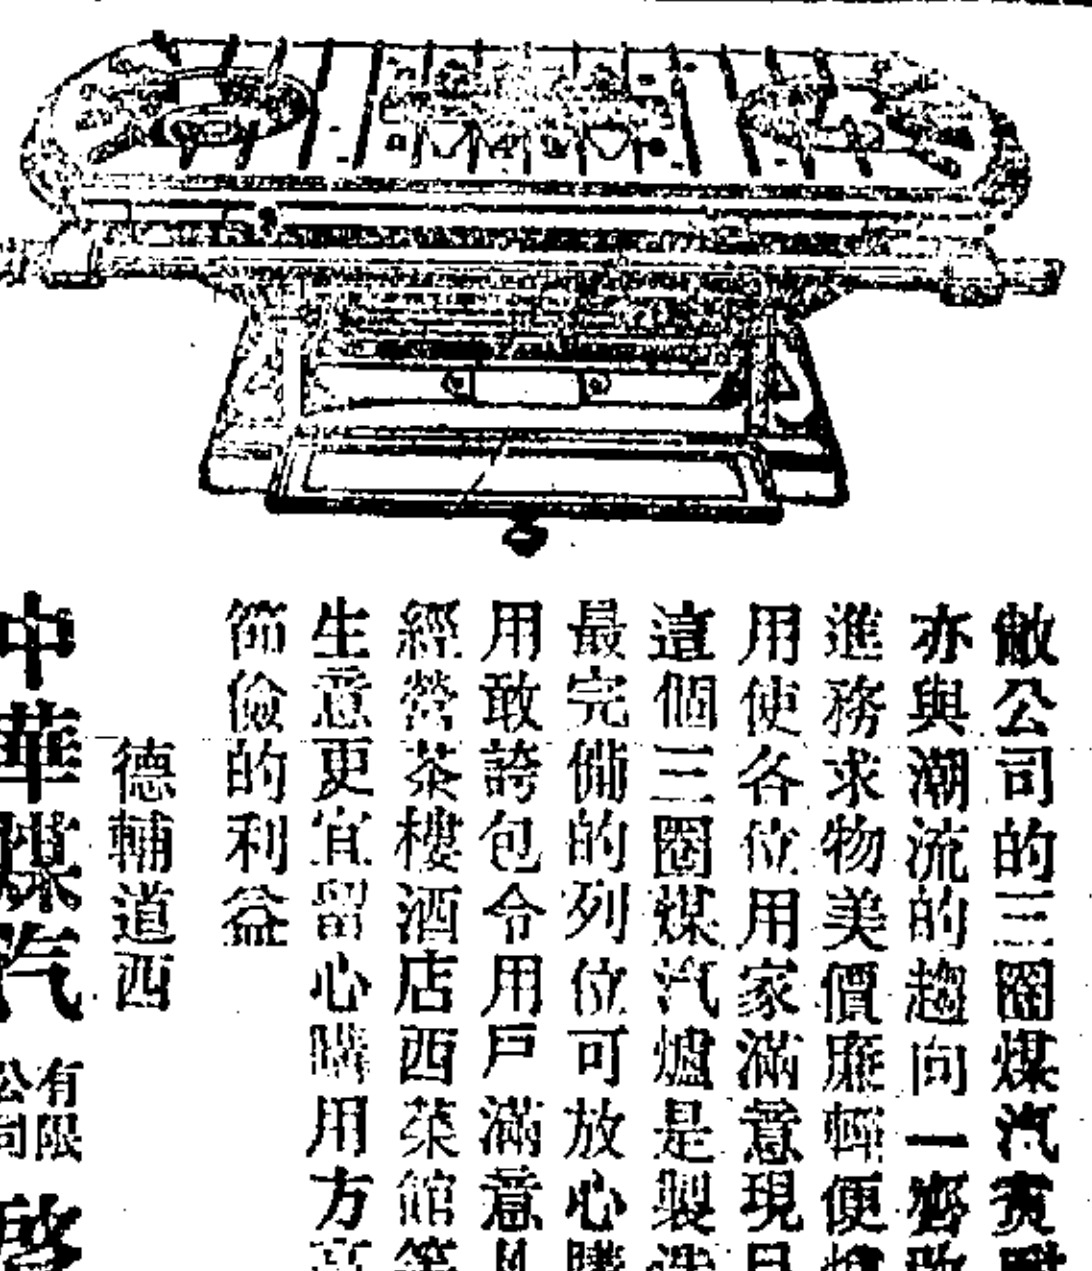 敝公司的三圈煤汽
亦與潮流的趨向一齊
進務求物美價廉輕便
用使各位用家滿意現
這個三圈煤汽爐是製
最完備的列位可放心購
用敢誇包令用戶滿意
經營茶樓酒店西菜館等
生意更宜留心購用方
節儉的利益
德輔道西
中華煤汽
有限
公司
啓